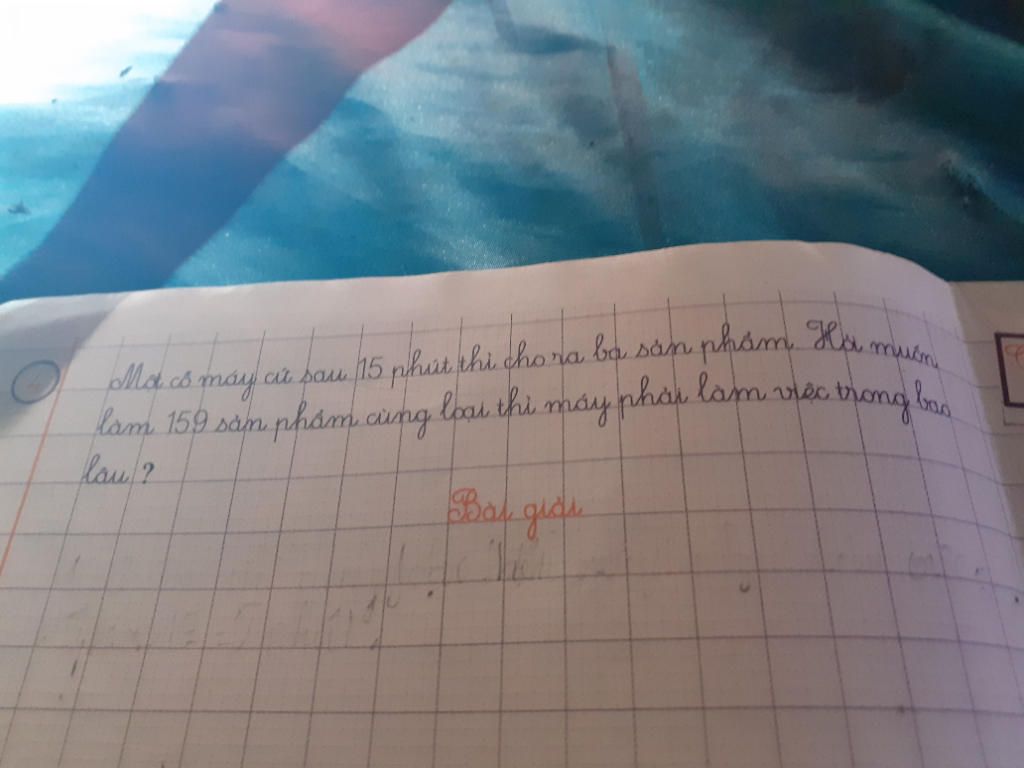 Một cỗ máy cứ sau 15 phút thì cho ra ba sản phẩm. Hỏi muốn
làm 159 sản phẩm cùng loại thì máy phải làm việc trong bao
lâu?
Bài giải